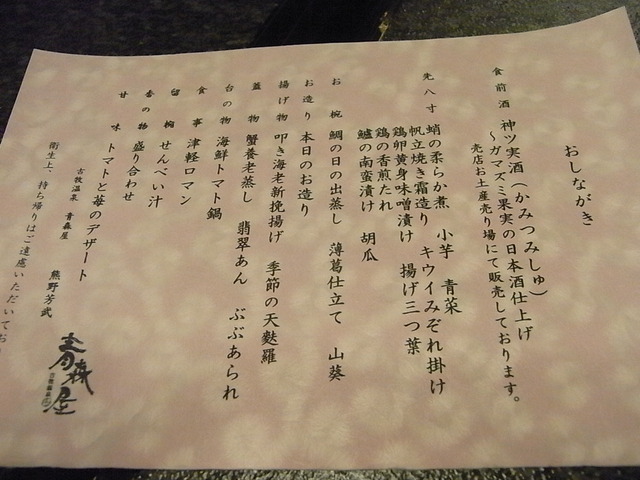 おしながき
食前酒 神ツ実酒(かみつみしゅ)
～ガマズミ果実の日本酒仕上げ
売店お土産売り場にて販売しております。
先八寸 蛸の柔らか煮 小芋 青菜
帆立焼き霜造り キウイみぞれ掛け
鶏卵黄身味噌漬け 揚げ三つ葉
鶏の香煎たれ
鱸の南蛮漬け 胡瓜
お椀 鯛の日の出蒸し 薄葛仕立て 山葵
お造り 本日のお造り
揚げ物 叩き海老新挽揚げ 季節の天麩羅
蓋物 蟹養老蒸し 翡翠あん ぶぶあられ
台の物 海鮮トマト鍋
食事 津軽ロマン
留椀 せんべい汁
香の物 盛り合わせ
甘味 トマトと苺のデザート
古牧温泉 青森屋 熊野芳武
衛生上、持ち帰りはご遠慮いただいてお
青森屋
古牧温泉